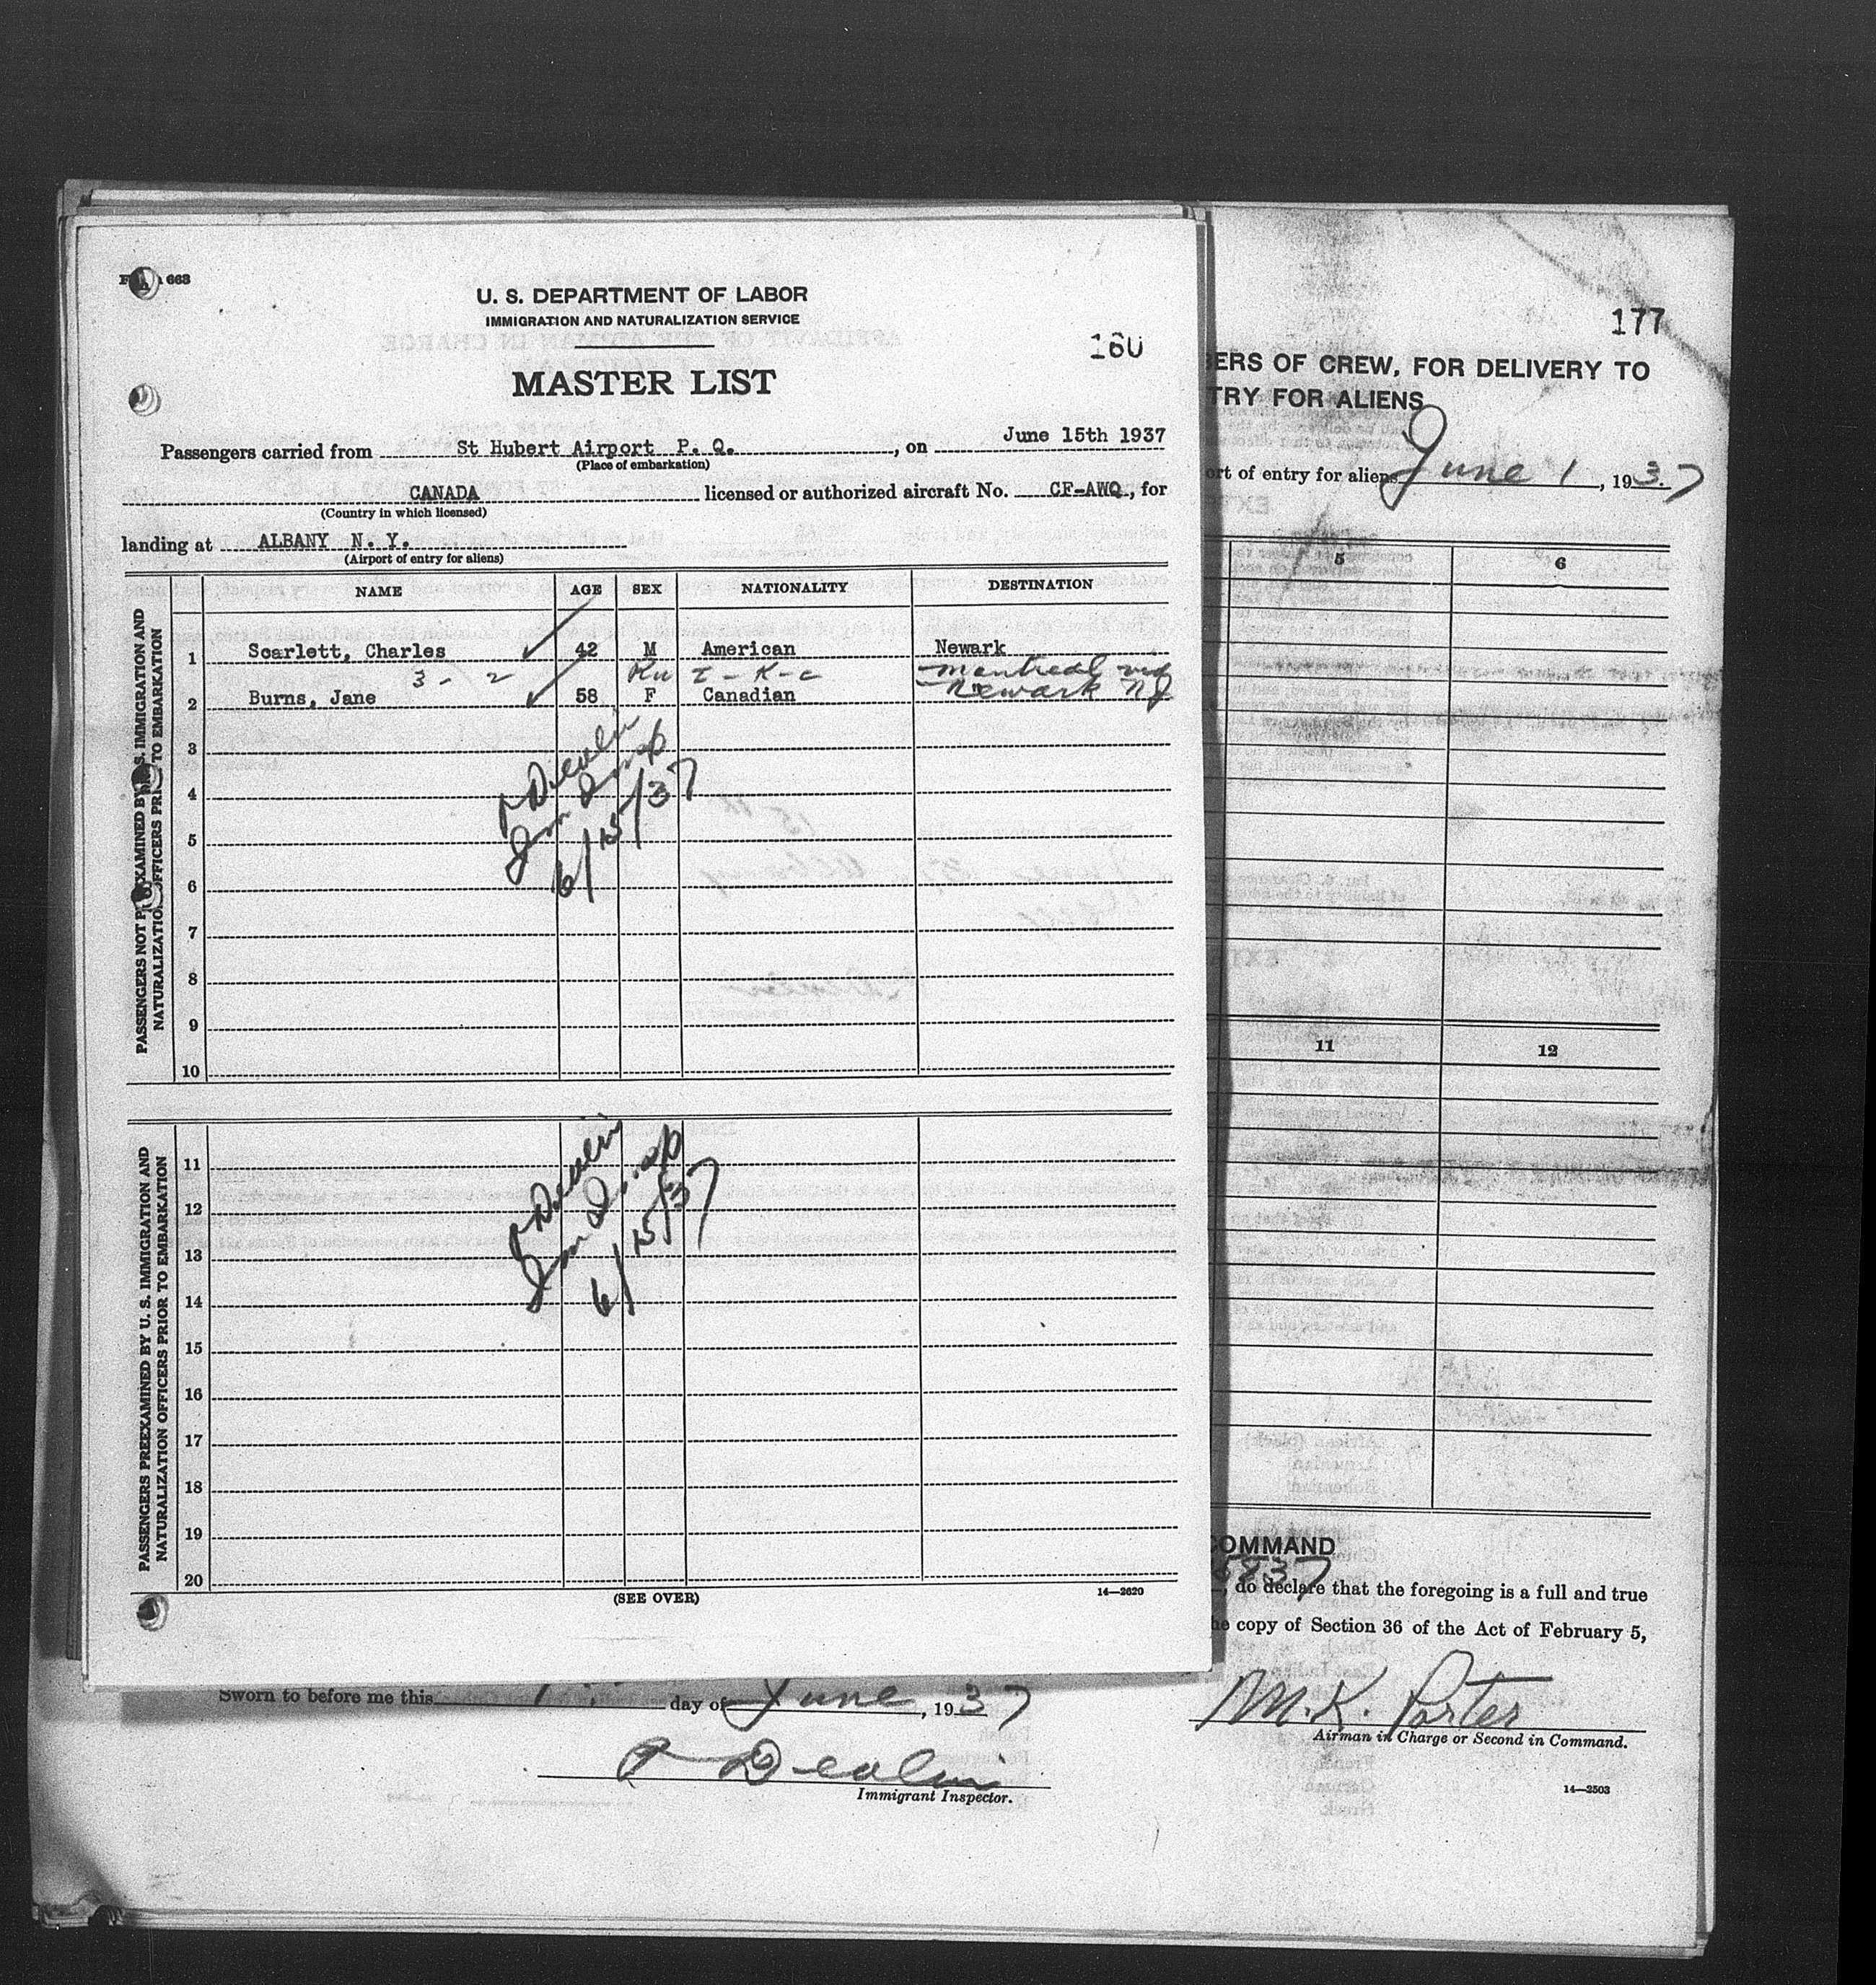 663
U. S. DEPARTMENT OF LABOR
IMMIGRATION AND NATURALIZATION SERVICE
160
MASTER LIST
Passengers carried from St Hubert Airport P. Q., on June 15th 1937
(Place of embarkation)
CANADA licensed or authorized aircraft No. CF-AWQ, for
(Country in which licensed)
landing at ALBANY N. Y.
(Airport of entry for aliens)
NAME AGE SEX NATIONALITY DESTINATION
PASSENGERS NOT EXAMINED BY S. IMMIGRATION AND
NATURALIZATION OFFICERS TO EMBARKATION
1 Scarlett, Charles 42 M American Newark
3 - 2 I - K - c Montreal via
2 Burns, Jane 58 F Canadian Newark NJ
3
4
5
6
7
8
9
10
Imm Insp
6/15/37
PASSENGERS PREEXAMINED BY U. S. IMMIGRATION AND
NATURALIZATION OFFICERS PRIOR TO EMBARKATION
11
12
13
14
15
16
17
18
19
20
Imm Insp
6/15/37
(SEE OVER)
14—2620
177
BERS OF CREW, FOR DELIVERY TO
TRY FOR ALIENS
ort of entry for aliens June 1, 1937
5 6
11 12
COMMAND
837
, do declare that the foregoing is a full and true
he copy of Section 36 of the Act of February 5,
M. K. Porter
Airman in Charge or Second in Command.
14—2503
Sworn to before me this 1 day of June, 1937
Immigrant Inspector.